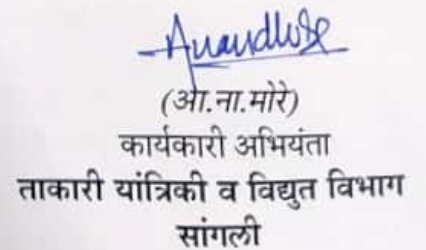 (आ.ना.मोरे)
कार्यकारी अभियंता
ताकारी यांत्रिकी व विद्युत विभाग
सांगली